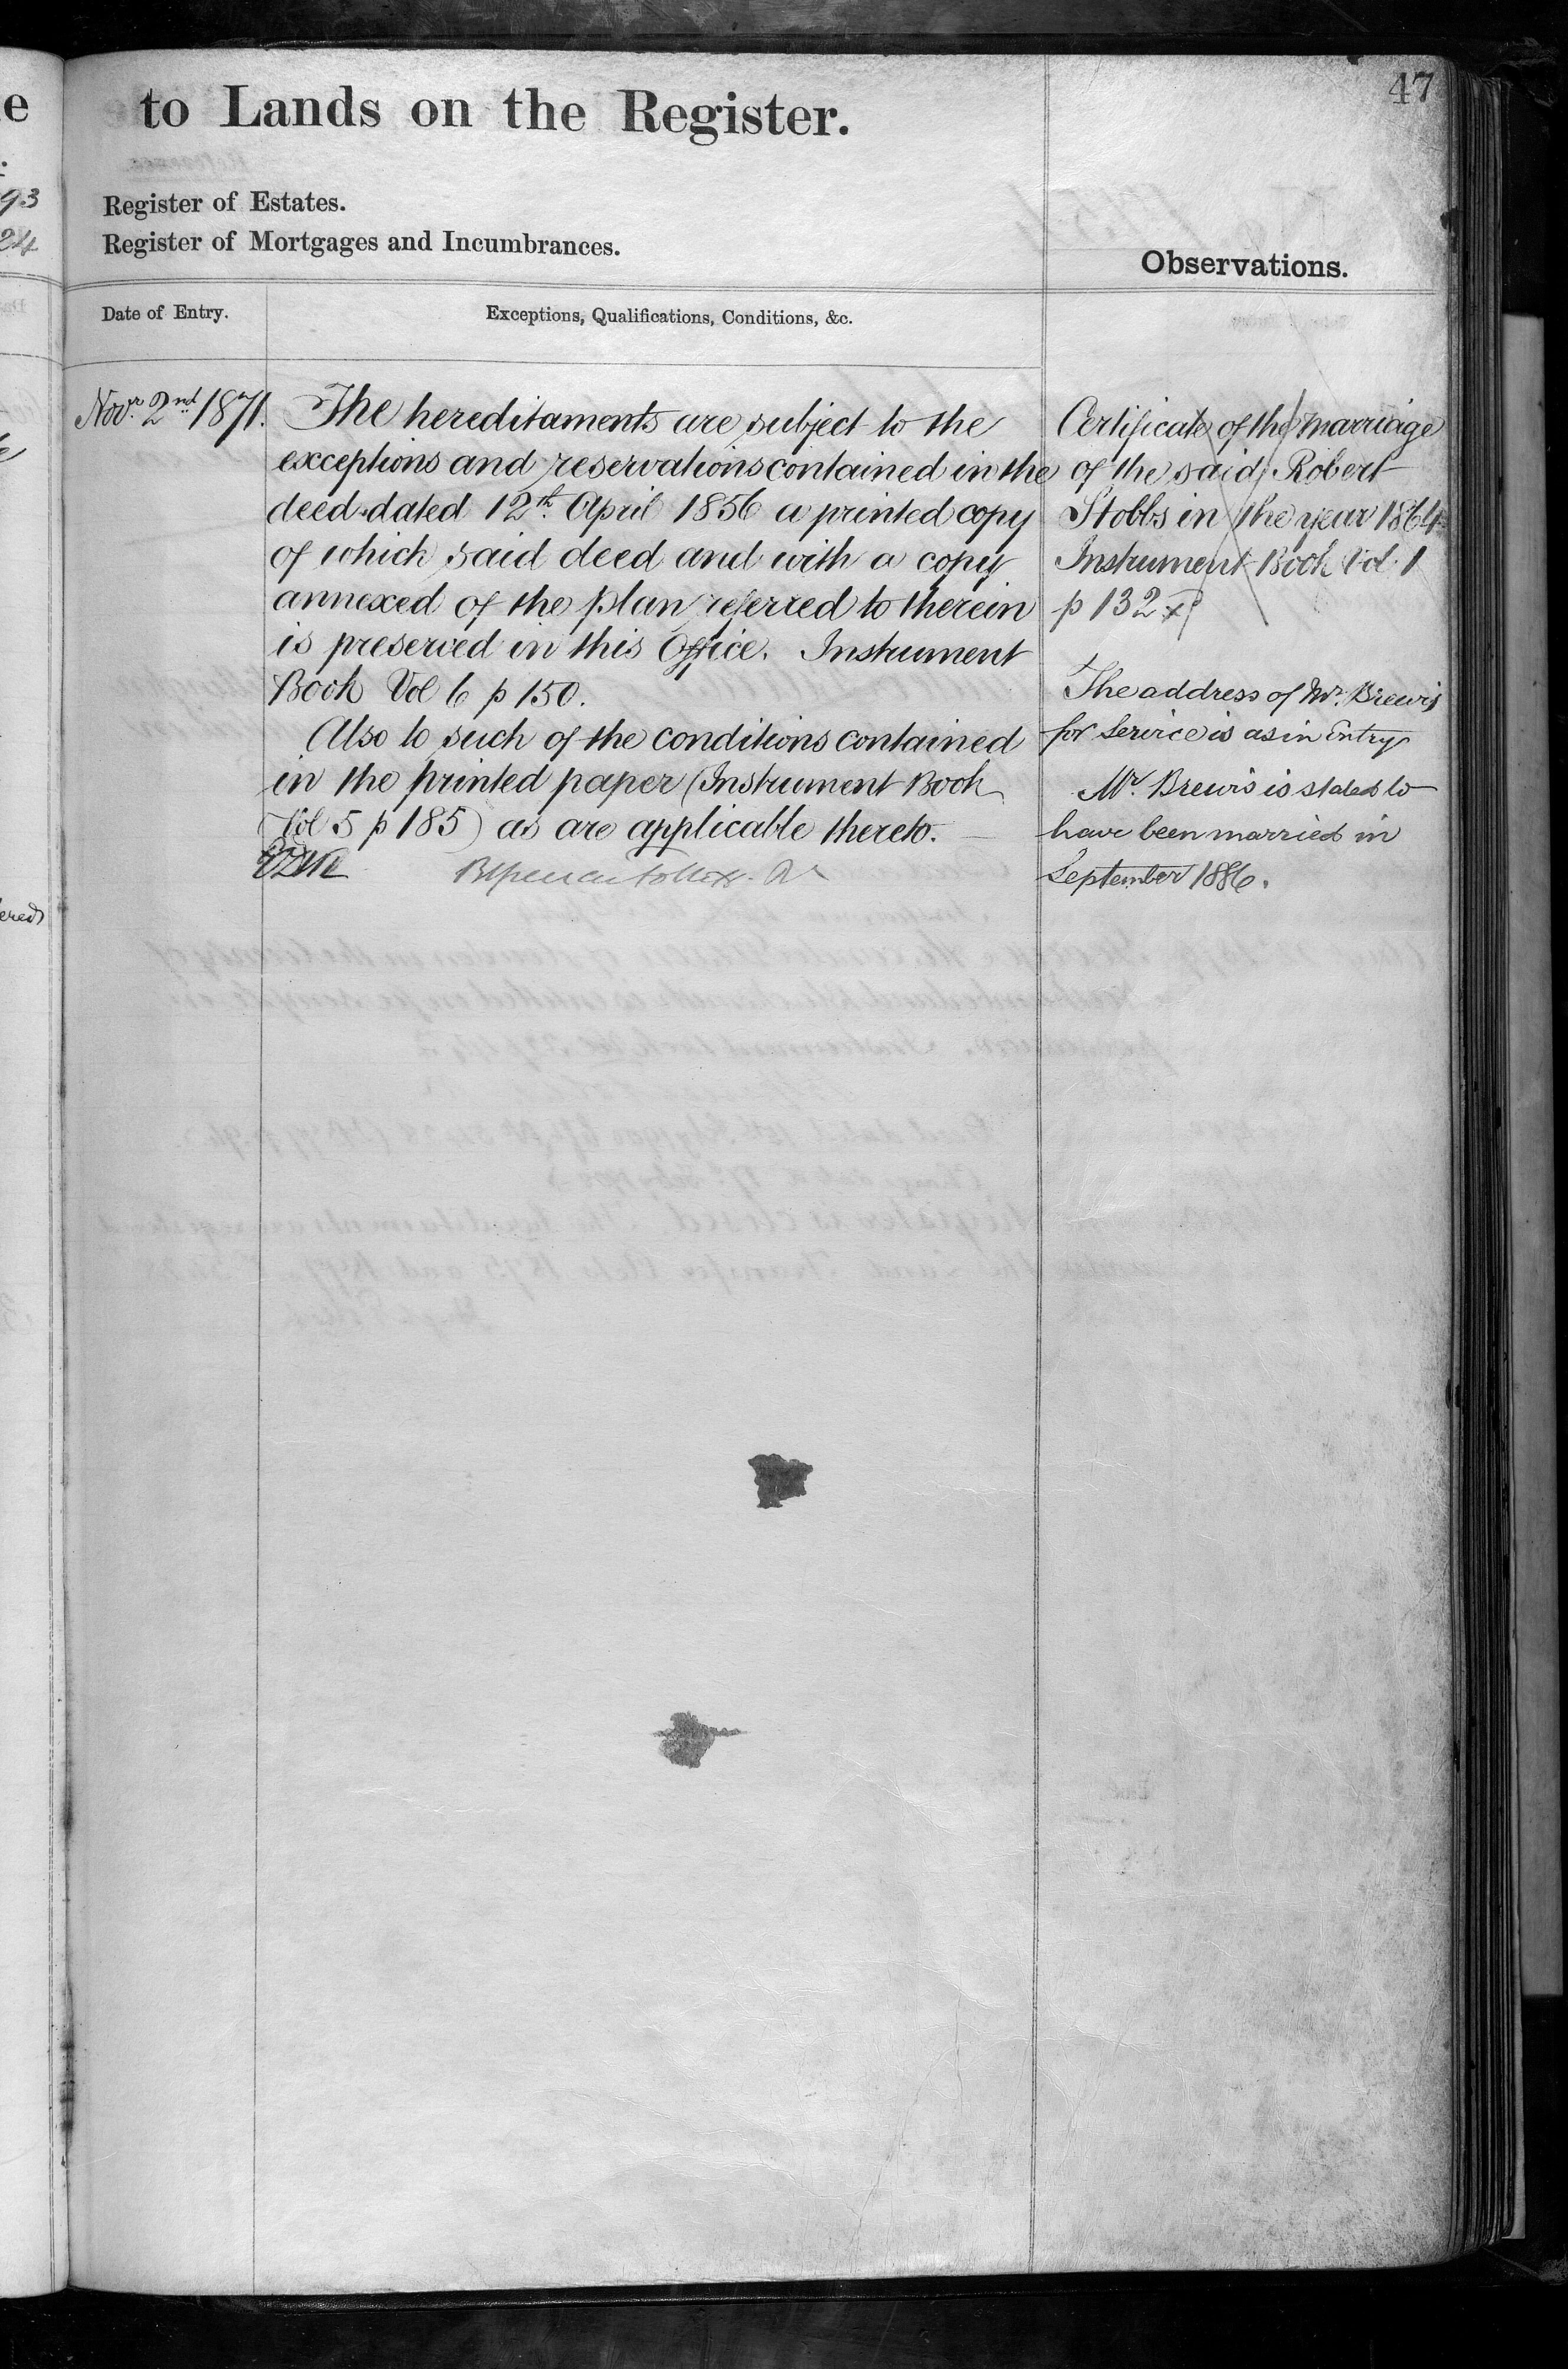 47
to Lands on the Register.
Register of Estates.
Register of Mortgages and Incumbrances.
Observations.
Date of Entry.
Exceptions, Qualifications, Conditions, &c.
Novr. 2nd 1871.
The hereditaments are subject to the
exceptions and reservations contained in the
deed dated 12th April 1856 a printed copy
of which said deed and with a copy
annexed of the plan referred to therein
is preserved in this Office. Instrument
Book Vol 6 p 150.
Also to such of the conditions contained
in the printed paper (Instrument Book
Vol 5 p 185) as are applicable thereto.
Certificate of the marriage
of the said Robert
Stobbs in the year 1864
Instrument Book Vol. 1
p 132
The address of Mr. Brewis
for service is as in Entry
Mr. Brewis is stated to
have been married in
September 1886.
e
93
24
ered